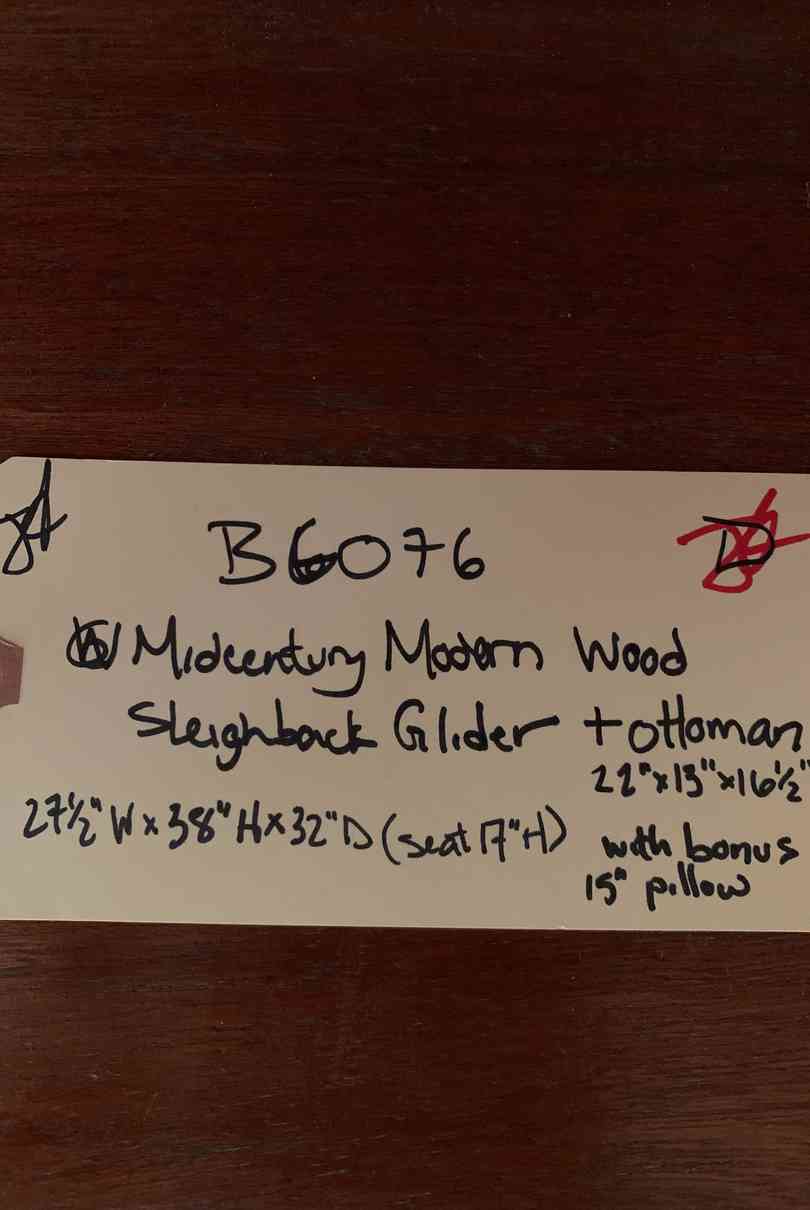 B6076
D
Midcentury Modern Wood
Sleighback Glider + ottoman
22"x13"x16½"
27½"W x 38"H x 32"D (seat 17"H)
with bonus
15" pillow